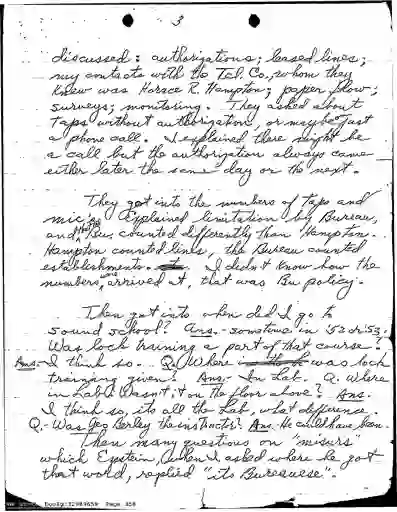 3
discussed: authorizations; leased lines;
my contacts with the Tel. Co., whom they
knew was Horace R. Hampton; paper flow;
surveys; monitoring. They asked about
Taps without authorization, or maybe just
a phone call. I explained there might be
a call but the authorization always came
either later the same day or the next.
They got into the numbers of Taps and
mic's. Explained limitation by Bureau,
and that Bu. counted differently than Hampton.
Hampton counted lines, the Bureau counted
establishments. I didn't know how the
numbers were arrived at, that was Bu policy.
Then got into when did I go to
sound school? Ans.- sometime in '52 or '53.
Was lock training a part of that course?
Ans.- I think so... Q. Where was lock
training given? Ans.- In Lab. Q. Where
in Lab? Wasn't it on the floor above? Ans.
I think so, its all the Lab, what difference.
Q.- Was Geo Berley the instructor? Ans. He could have been.
Then many questions on "misurs"
which Epstein, when I asked where he got
that word, replied "its Bureauese".
DocId:32989650 Page 358